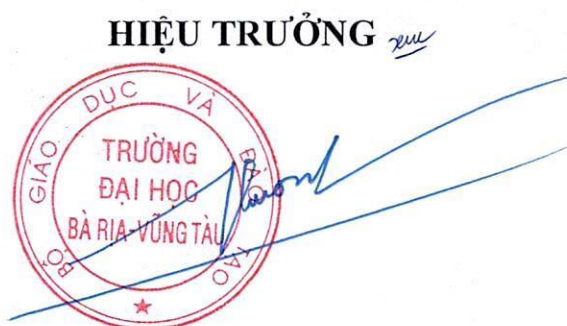 HIỆU TRƯỞNG
BỘ GIÁO DỤC VÀ ĐÀO TẠO
TRƯỜNG
ĐẠI HỌC
BÀ RỊA-VŨNG TÀU